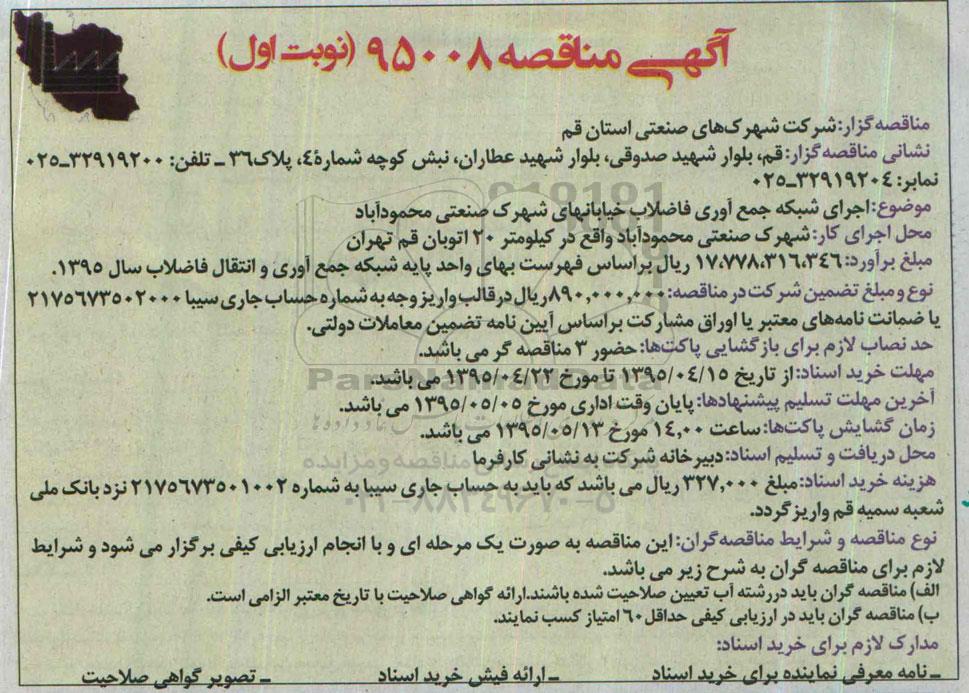 آگهی مناقصه ۹۵۰۰۸ (نوبت اول)
مناقصه گزار: شرکت شهرک‌های صنعتی استان قم
نشانی مناقصه گزار: قم، بلوار شهید صدوقی، بلوار شهید عطاران، نبش کوچه شمارهٔ ٤، پلاک ٣٦ ـ تلفن: ٣٢٩١٩٢٠٠ـ٠٢٥
نمابر: ٣٢٩١٩٢٠٤ـ٠٢٥
موضوع: اجرای شبکه جمع آوری فاضلاب خیابانهای شهرک صنعتی محمودآباد
محل اجرای کار: شهرک صنعتی محمودآباد واقع در کیلومتر ٢٠ اتوبان قم تهران
مبلغ برآورد: ١٧،٧٧٨،٣١٦،٣٤٦ ریال براساس فهرست بهای واحد پایه شبکه جمع آوری و انتقال فاضلاب سال ١٣٩٥.
نوع و مبلغ تضمین شرکت در مناقصه: ٨٩٠,٠٠٠,٠٠٠ ریال در قالب واریز وجه به شماره حساب جاری سیبا ٢١٧٥٦٧٣٥٠٢٠٠٠
یا ضمانت نامه‌های معتبر یا اوراق مشارکت براساس آیین نامه تضمین معاملات دولتی.
حد نصاب لازم برای بازگشایی پاکت‌ها: حضور ٣ مناقصه گر می باشد.
مهلت خرید اسناد: از تاریخ ١٣٩٥/٠٤/١٥ تا مورخ ١٣٩٥/٠٤/٢٢ می باشد.
آخرین مهلت تسلیم پیشنهادها: پایان وقت اداری مورخ ١٣٩٥/٠٥/٠٥ می باشد.
زمان گشایش پاکت‌ها: ساعت ١٤,٠٠ مورخ ١٣٩٥/٠٥/١٣ می باشد.
محل دریافت و تسلیم اسناد: دبیرخانه شرکت به نشانی کارفرما
هزینه خرید اسناد: مبلغ ٣٢٧,٠٠٠ ریال می باشد که باید به حساب جاری سیبا به شماره ٢١٧٥٦٧٣٥٠١٠٠٢ نزد بانک ملی
شعبه سمیه قم واریز گردد.
نوع مناقصه و شرایط مناقصه گران: این مناقصه به صورت یک مرحله ای و با انجام ارزیابی کیفی برگزار می شود و شرایط
لازم برای مناقصه گران به شرح زیر می باشد.
الف) مناقصه گران باید در رشته آب تعیین صلاحیت شده باشند. ارائه گواهی صلاحیت با تاریخ معتبر الزامی است.
ب) مناقصه گران باید در ارزیابی کیفی حداقل ٦٠ امتیاز کسب نمایند.
مدارک لازم برای خرید اسناد:
ـ نامه معرفی نماینده برای خرید اسناد ـ ارائه فیش خرید اسناد ـ تصویر گواهی صلاحیت
ParsNamadData